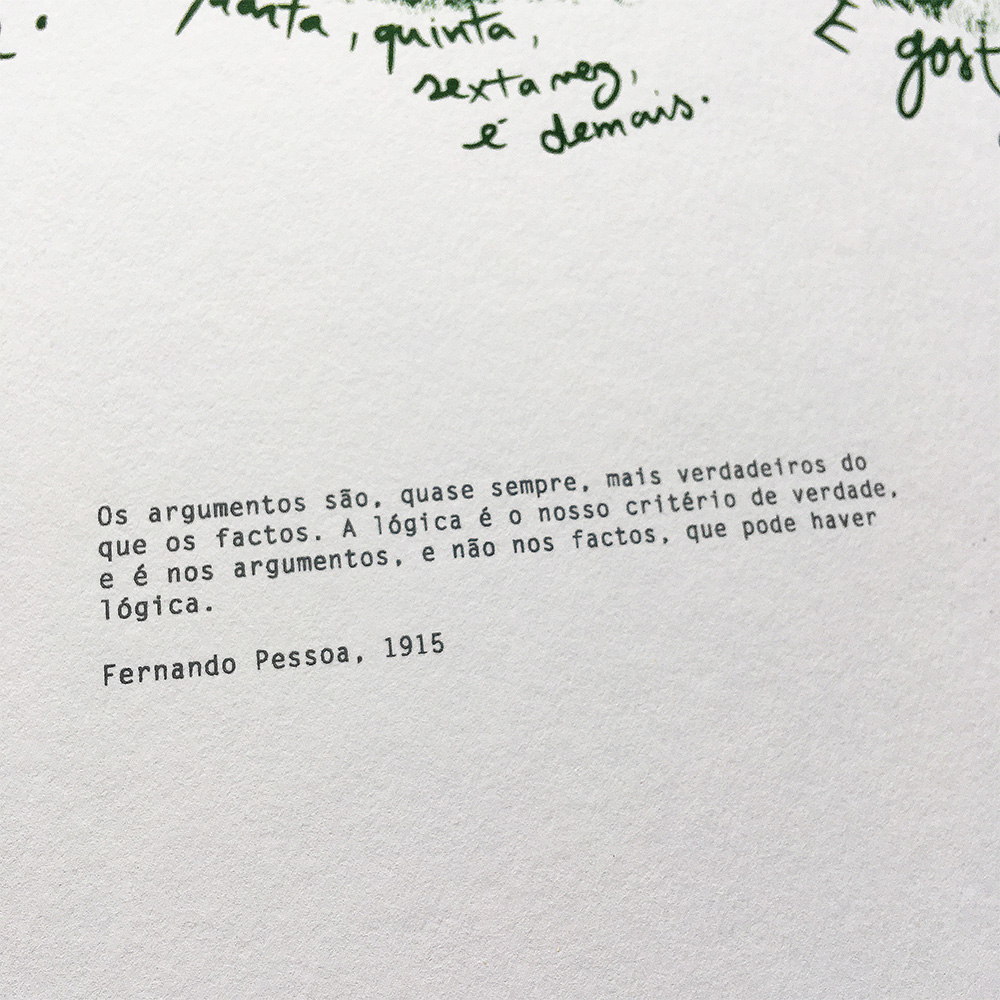 quinta,
sexta vez,
é demais.
E
Os argumentos são, quase sempre, mais verdadeiros do
que os factos. A lógica é o nosso critério de verdade,
e é nos argumentos, e não nos factos, que pode haver
lógica.
Fernando Pessoa, 1915